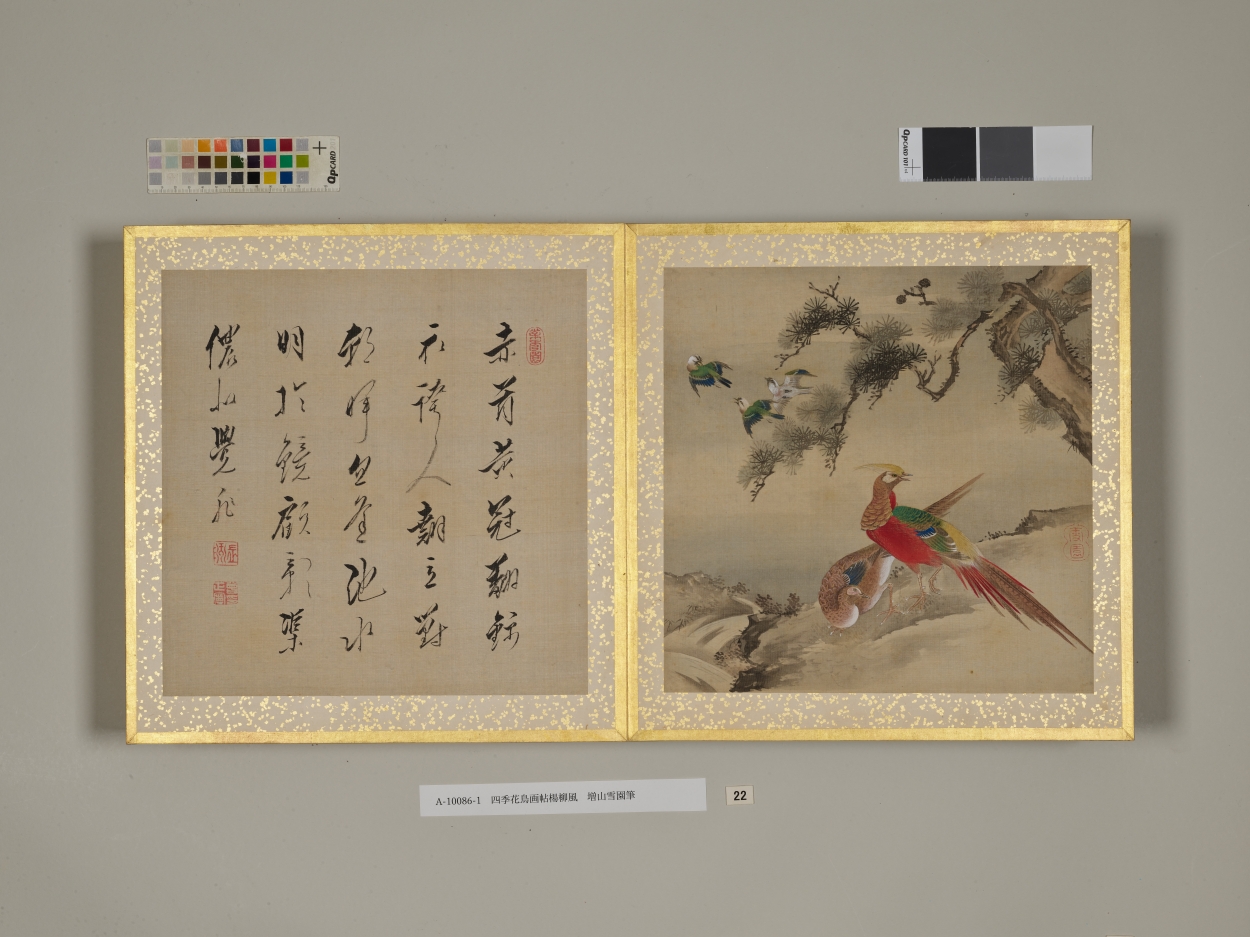 赤芾黃冠翻錦
衣誇人立對
朝暉池水
明於鏡顧影渠
儂覺非
A-10086-1　四季花鳥画帖楊柳風　増山雪園筆
22
QPCARD
QPCARD 101